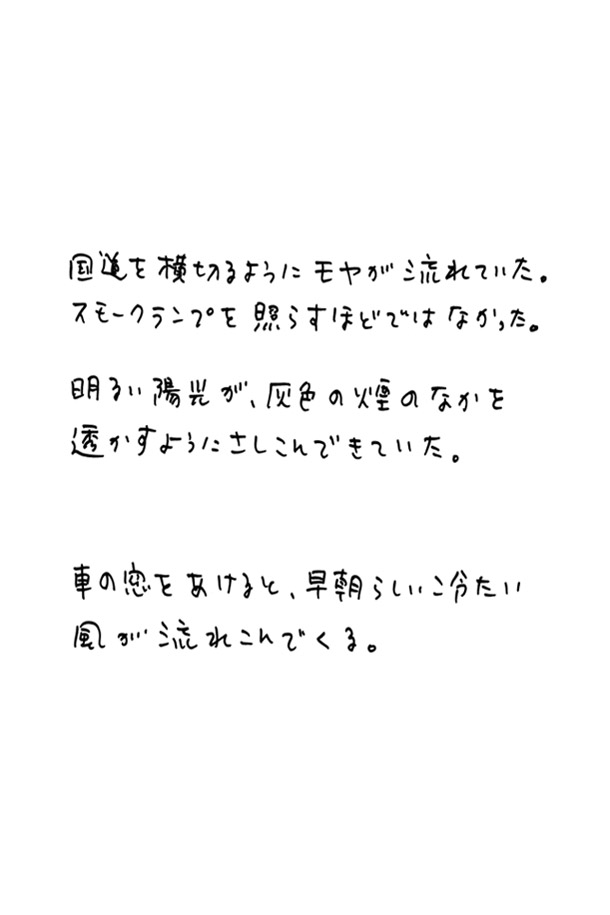 国道を横切るようにモヤが流れていた。
スモークランプを照らすほどではなかった。
明るい陽光が、灰色の煙のなかを
透かすようにさしこんできていた。
車の窓をあけると、早朝らしい冷たい
風が流れこんでくる。